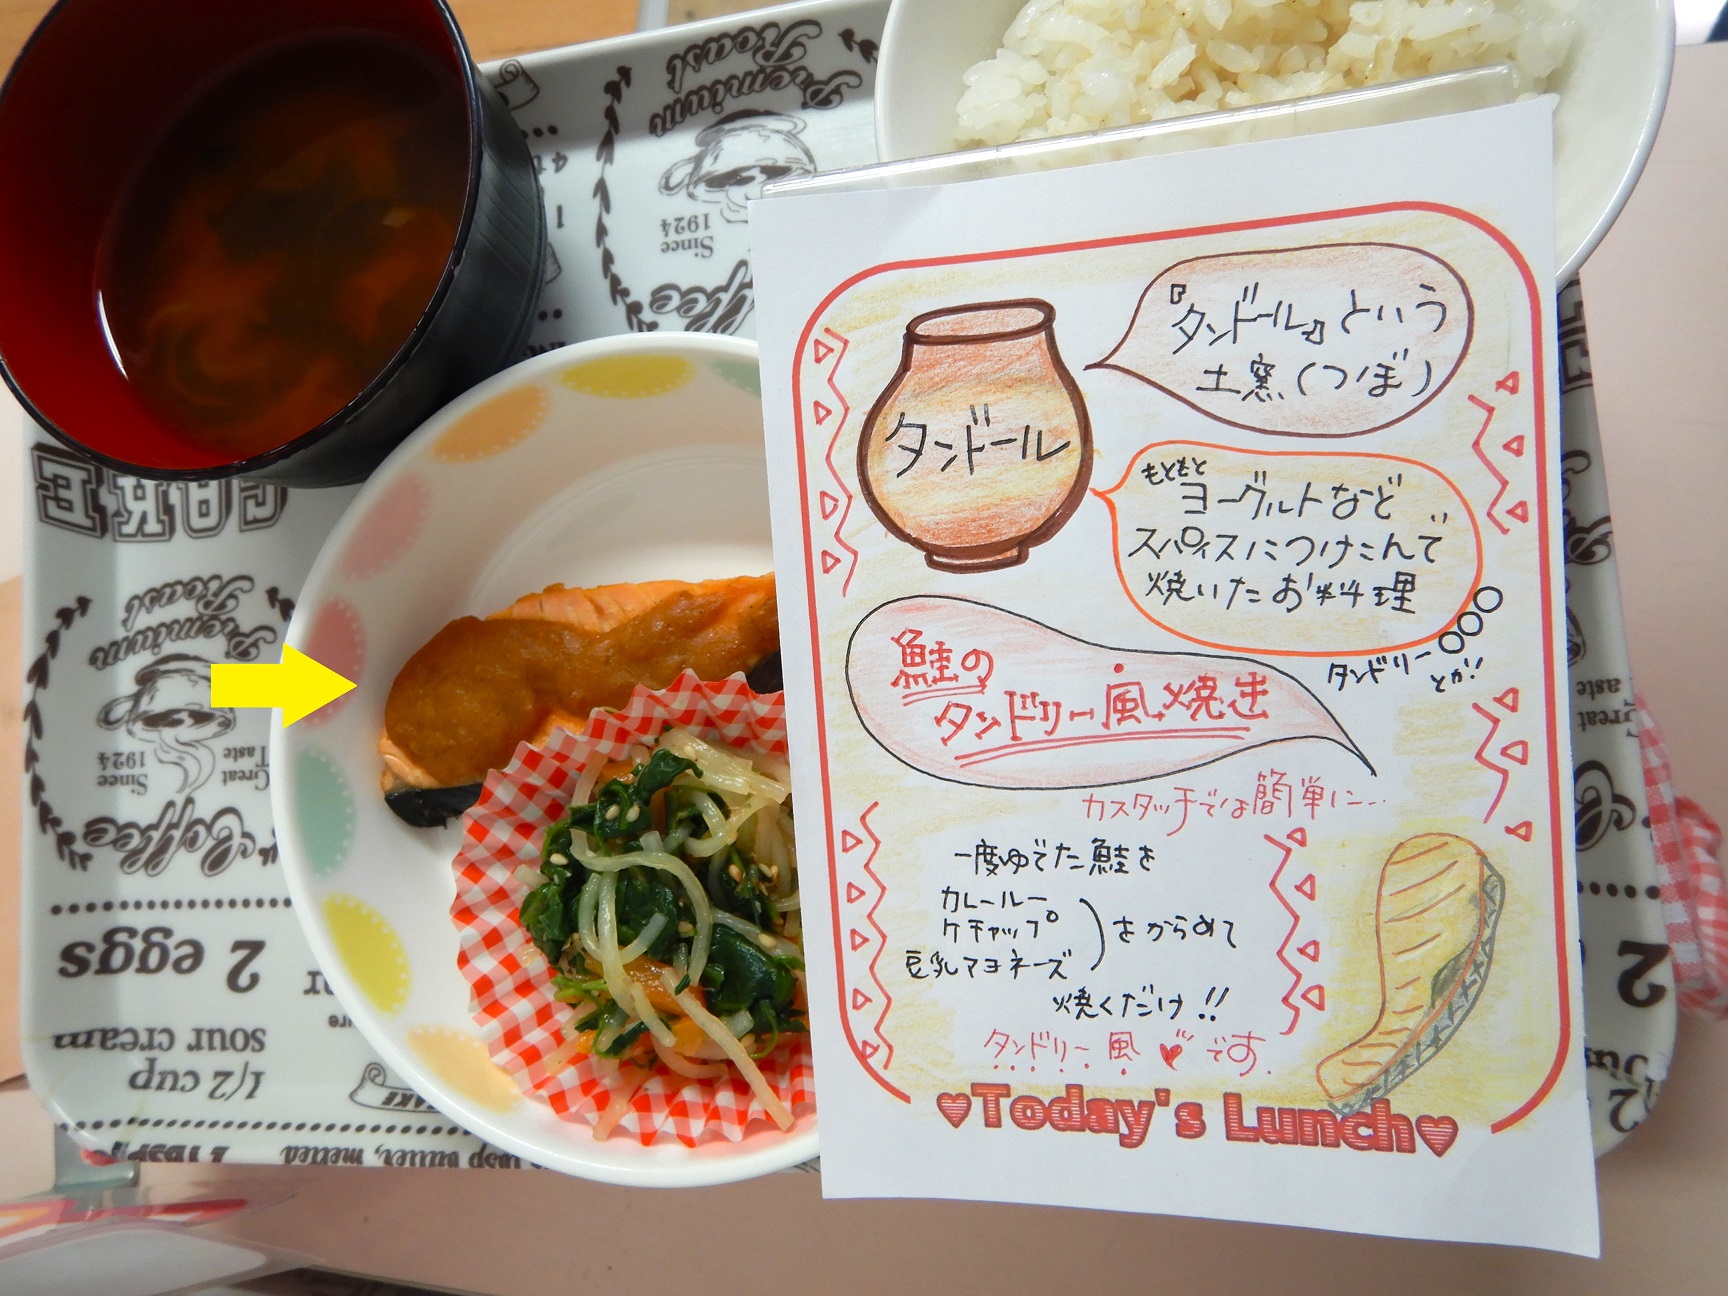 『タンドール』という
土窯(つぼ)
タンドール
もともと
ヨーグルトなど
スパイスにつけこんで
焼いたお料理
タンドリー
とか!!
鮭の
タンドリー風焼き
カスタッチでは簡単に…
一度ゆでた鮭を
カレールー
ケチャップ
豆乳マヨネーズ
をからめて
焼くだけ!!
タンドリー風♥です。
♥Today's Lunch♥
Premium
Roast
Since
1924
Coffee
CAKE
Premium
Roast
Since
1924
Great
Taste
Coffee
2 eggs
1/2 cup
sour cream
CAKE
butter, melted